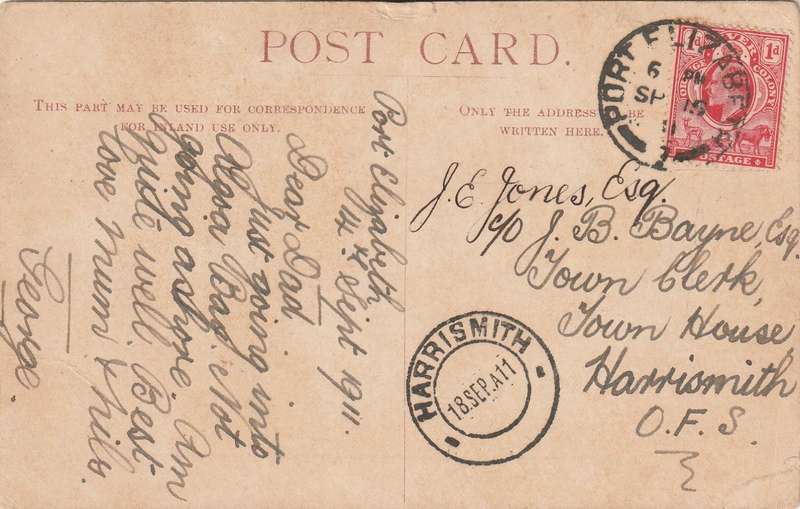 POST CARD.
THIS PART MAY BE USED FOR CORRESPONDENCE
FOR INLAND USE ONLY.
ONLY THE ADDRESS BE
WRITTEN HERE.
Port Elizabeth
14th Sept 1911.
Dear Dad
Just going into
Algoa Bay. Not
going ashore. Am
quite well. Best
love Mum &
George.
J. E. Jones, Esq.
c/o J. B. Bayne, Esq.
Town Clerk,
Town House
Harrismith
O.F.S.
PORT ELIZABETH
6 PM
SP 15
11
1
1d
POSTAGE
HARRISMITH
18.SEP.A11